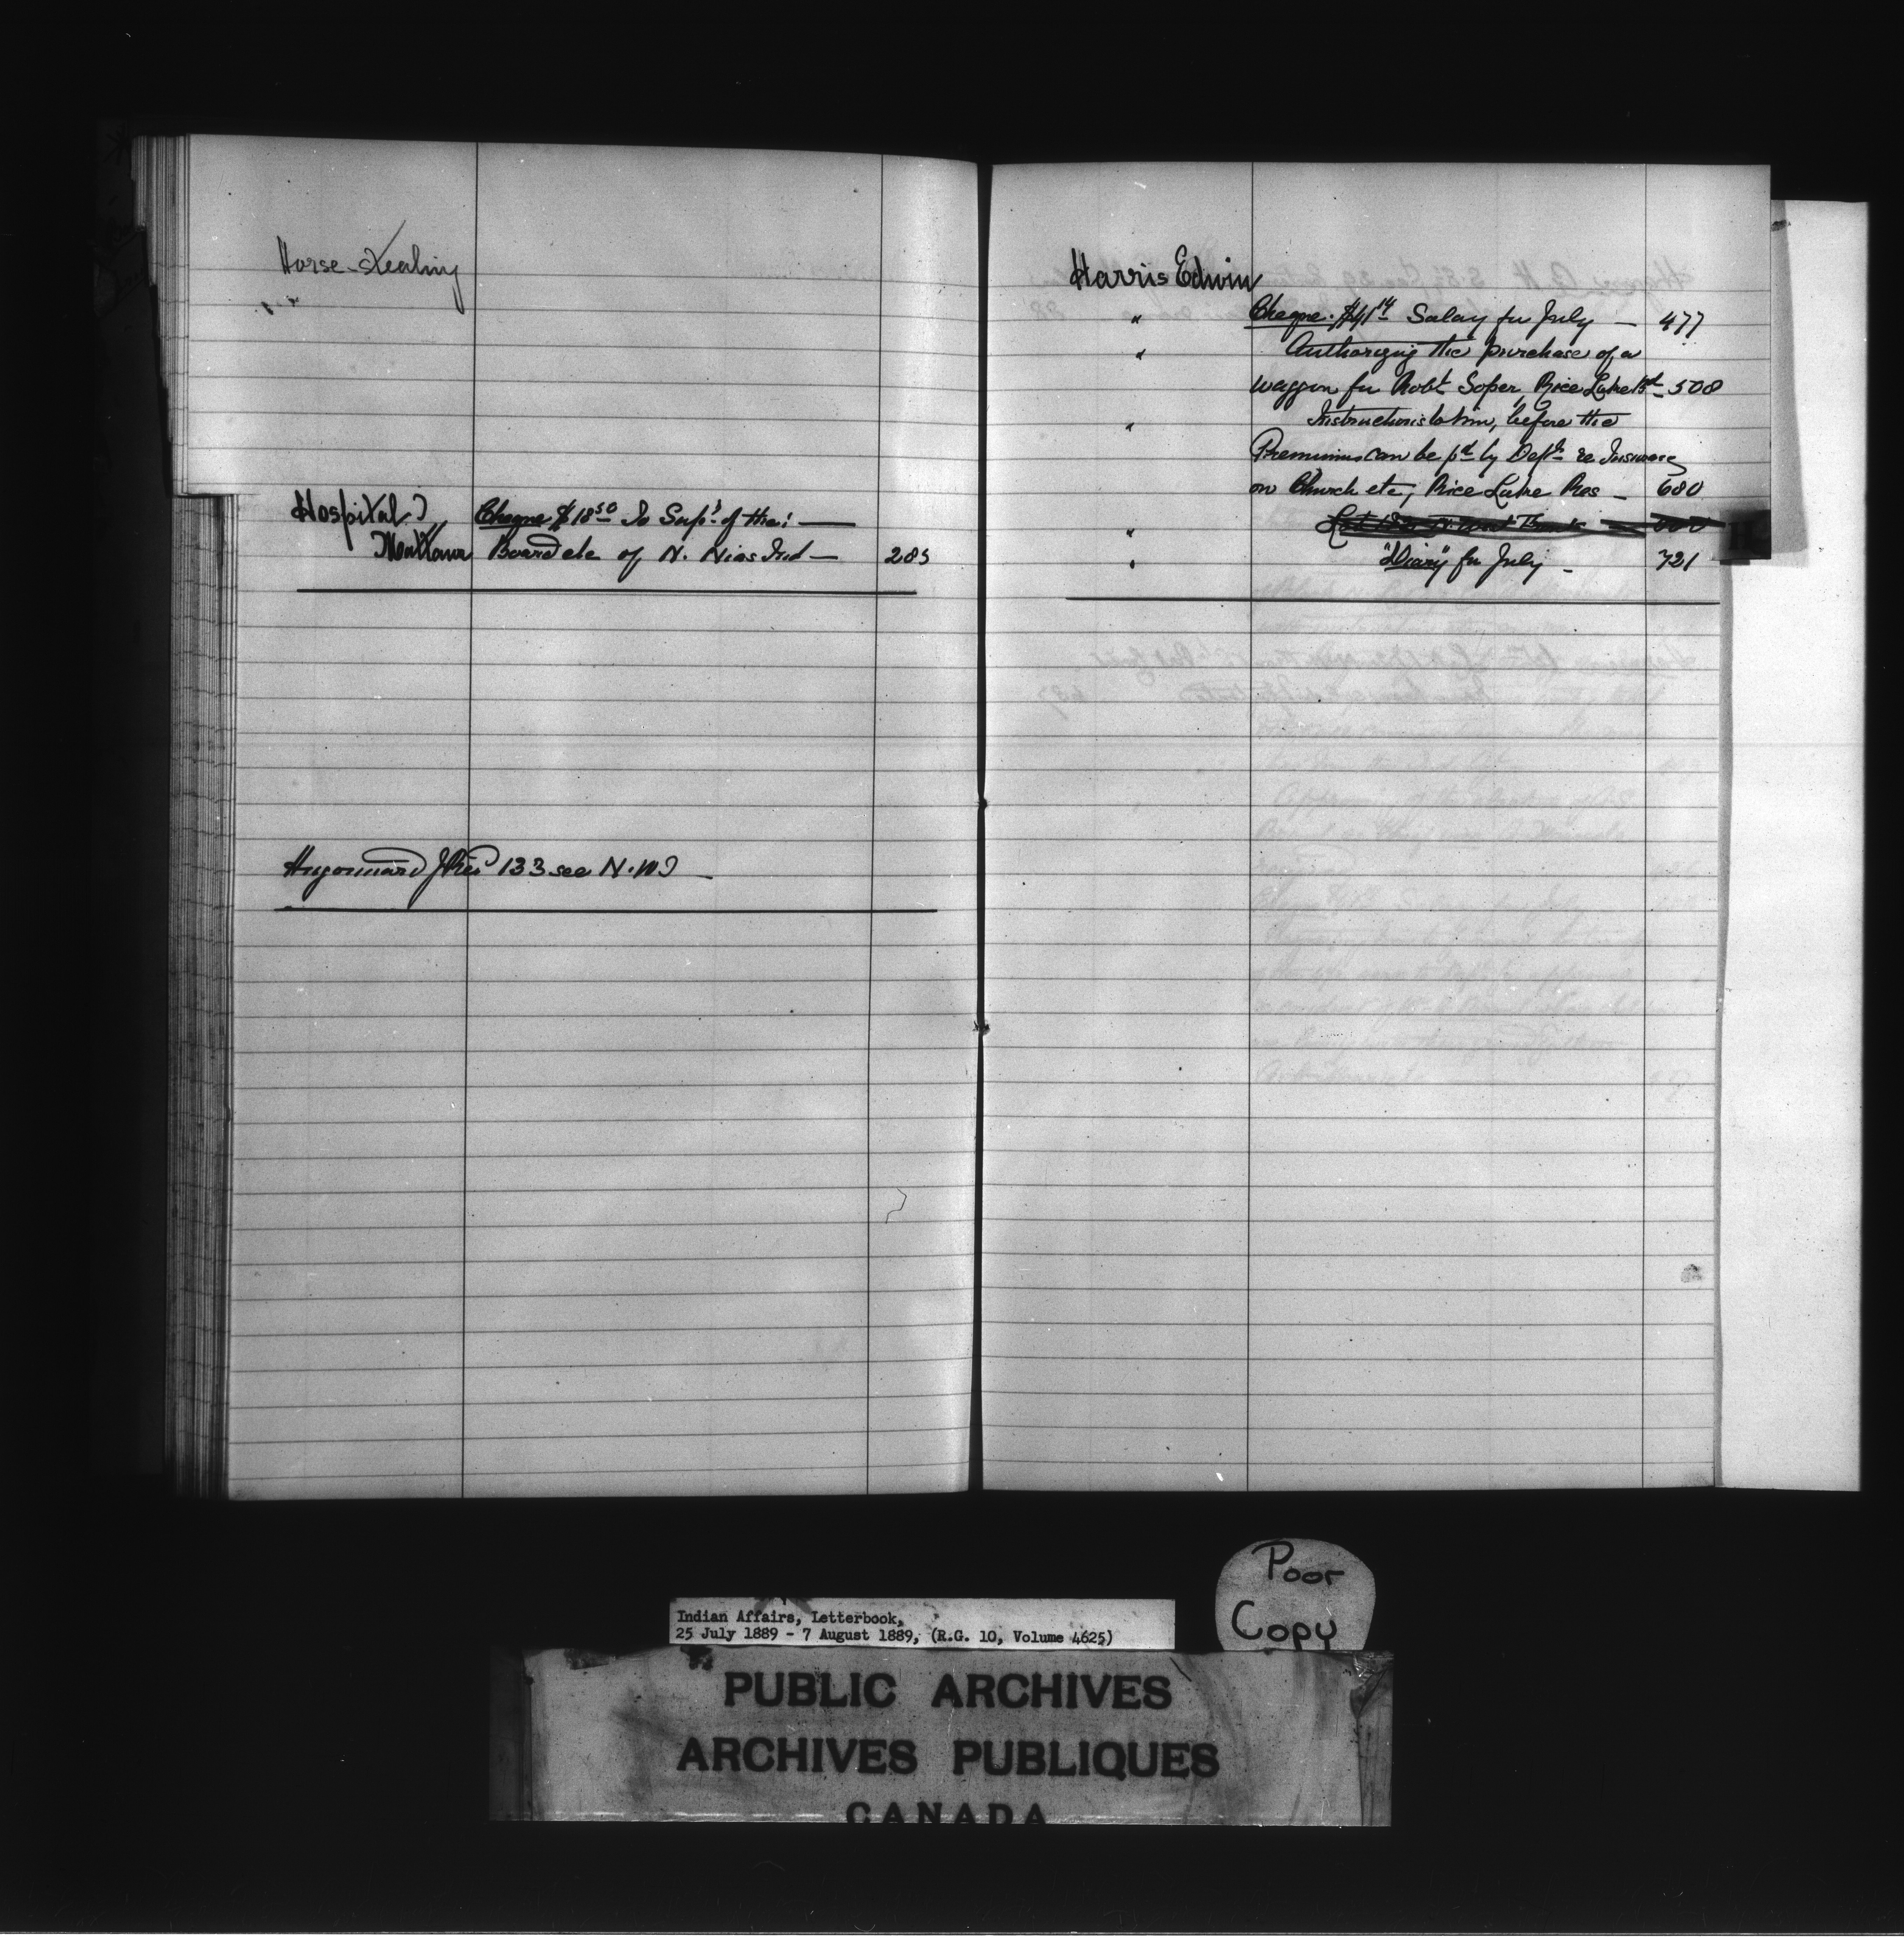 Horse-stealing
Hospital
Mattawa
Cheque $18 50 To Sup't of the:
Board etc of N. Nias Ind — 285
Hugonnard 133 see N.W.T
Harris Edwin
" Cheque. $41 14 Salary for July — 477
" Authorizing the purchase of a
waggon for Robt Soper, Rice Lake Bd — 508
" Instructions to him, before the
Premiums can be pd by Dept re Insurance
on Church etc, Rice Lake Res — 680
"
" "Diary" for July — 721
H
Poor
Copy
Indian Affairs, Letterbook,
25 July 1889 - 7 August 1889, (R.G. 10, Volume 4625)
PUBLIC ARCHIVES
ARCHIVES PUBLIQUES
CANADA